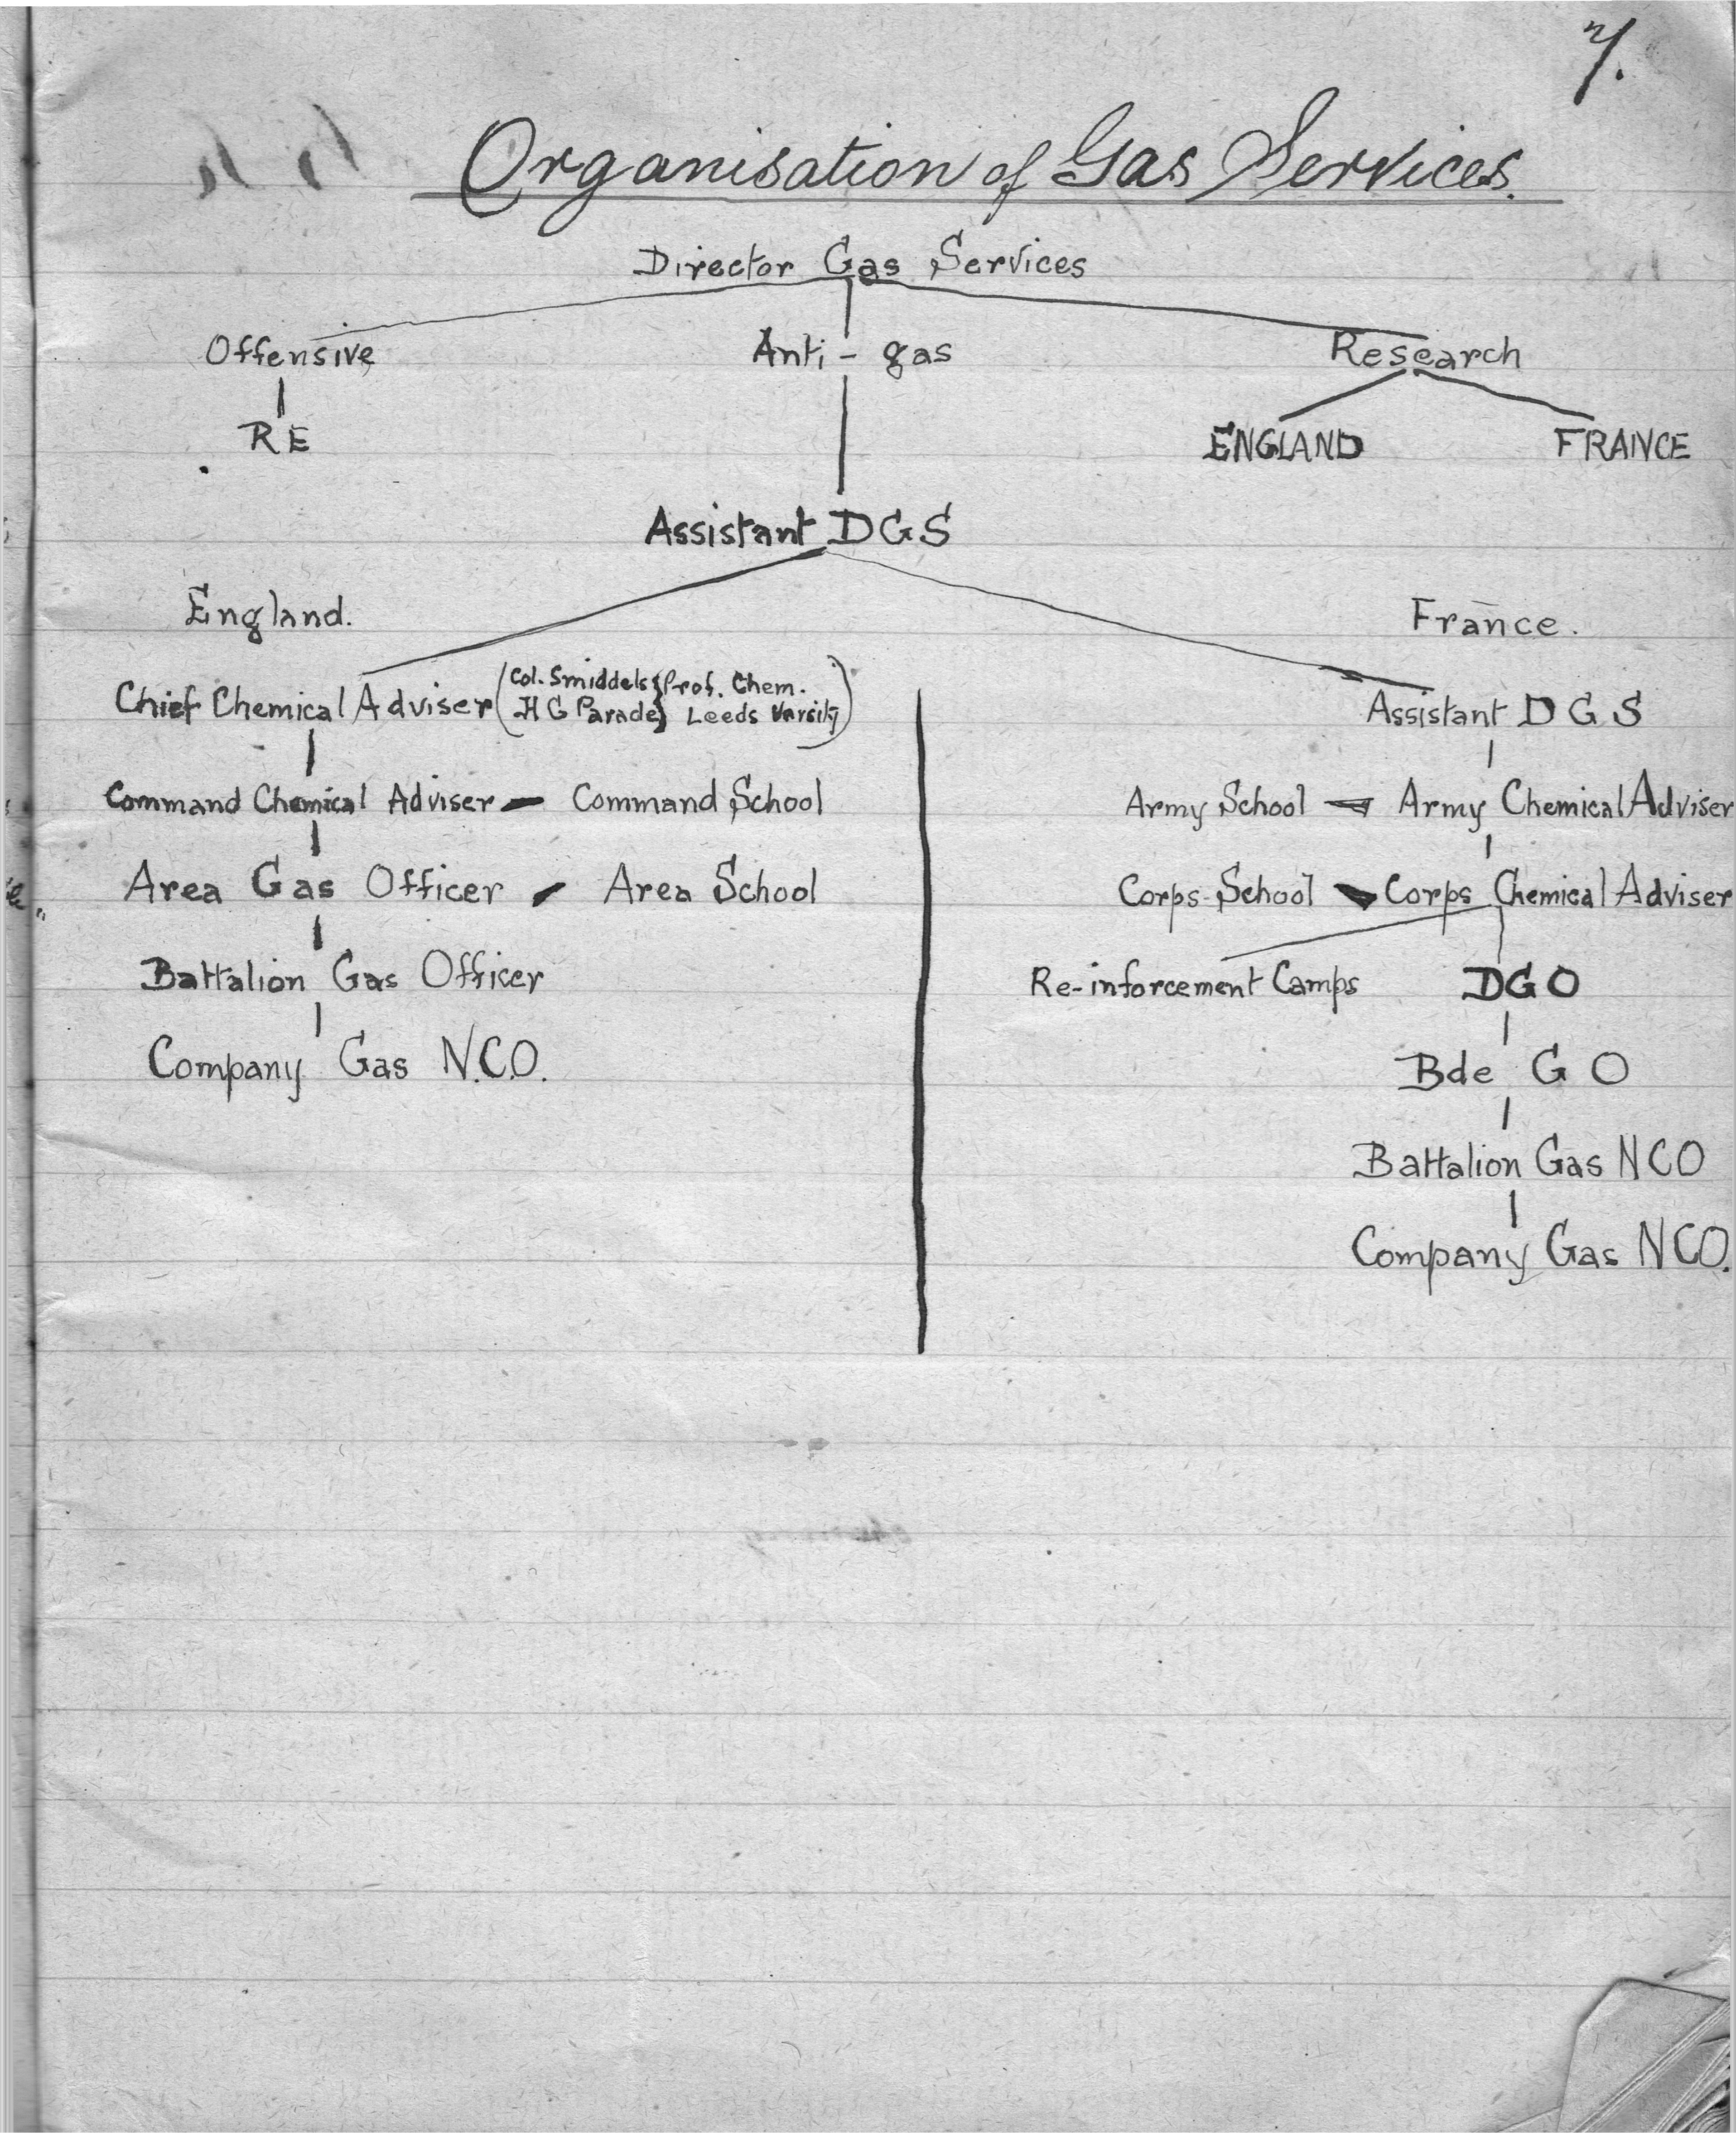 7.
Organisation of Gas Services.
Director Gas Services
Offensive Anti-gas Research
RE ENGLAND FRANCE
Assistant DGS
England. France.
Chief Chemical Adviser (Col. Smiddels } Prof. Chem.
H G Parade } Leeds Varsity)
Assistant D G S
Command Chemical Adviser - Command School
Army School - Army Chemical Adviser
Area Gas Officer - Area School
Corps-School - Corps Chemical Adviser
Battalion Gas Officer
Re-inforcement Camps DGO
Company Gas N.C.O.
Bde G O
Battalion Gas NCO
Company Gas NCO.